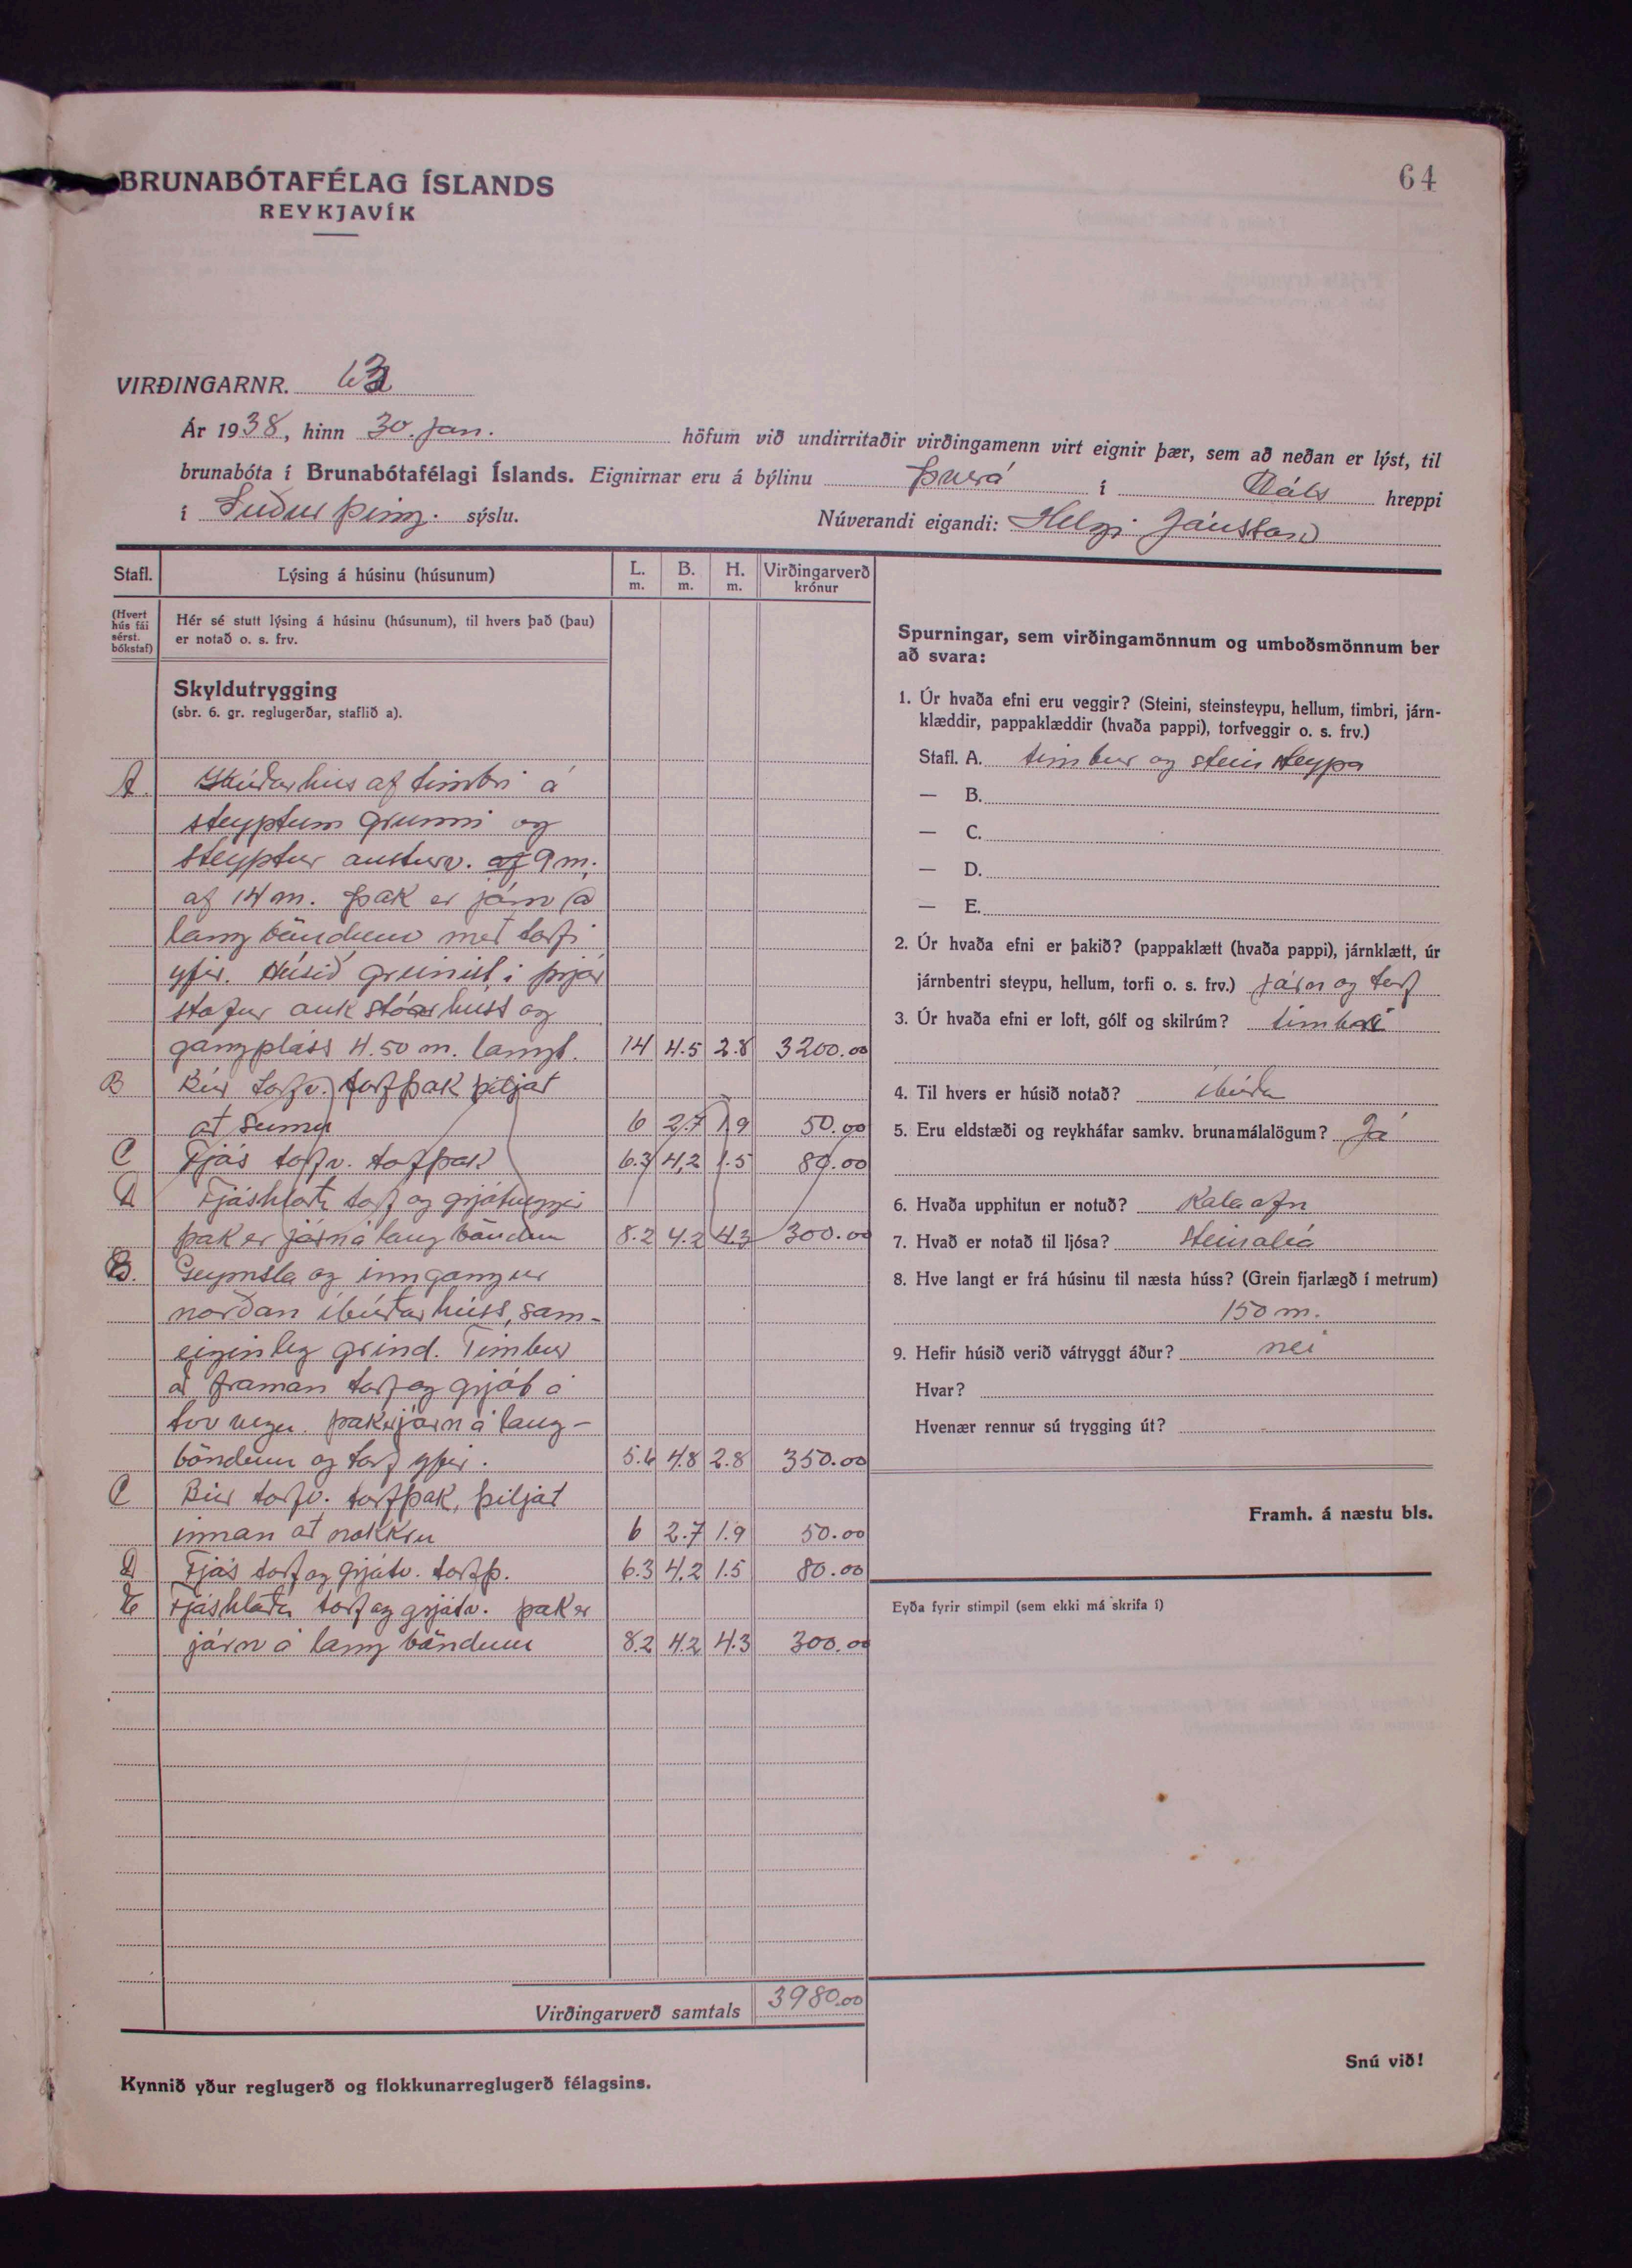 BRUNABÓTAFÉLAG ÍSLANDS
REYKJAVÍK
64
VIRÐINGARNR. 63
Ár 1938, hinn 30. Jan. höfum við undirritaðir virðingamenn virt eignir þær, sem að neðan er lýst, til
brunabóta í Brunabótafélagi Íslands. Eignirnar eru á býlinu Þverá í Háls hreppi
í Suður Þing. sýslu. Núverandi eigandi: Helgi Jónsson
Stafl. Lýsing á húsinu (húsunum) L. m. B. m. H. m. Virðingarverð krónur
(Hvert hús fái sérst. bókstaf)
Hér sé stutt lýsing á húsinu (húsunum), til hvers það (þau)
er notað o. s. frv.
Skyldutrygging
(sbr. 6. gr. reglugerðar, staflið a).
A. Íbúðarhús af timbri á
steyptum grunni og
steyptur austurv. af 9 m.
af 14 m. Þak er járn á
langböndum með torfi
yfir. Húsið greinist í þrjár
stofur auk stóar huss og
gangpláss 4.50 m. langt. 14 4.5 2.8 3200.00
B Búr torfv. torfþak þiljað
að sumu 6 2.7 1.9 50.00
C Fjós torfv. torfþak 6.3 4.2 1.5 80.00
D Fjóshlaða torf og grjótveggir
þak er járn á lang böndum 8.2 4.2 4.3 300.00
B. Geymsla og inngangur
norðan íbúðarhúss, sam-
eiginleg grind. Timbur
að framan torf og grjót á
tvo vegu. þak er járn á lang-
böndum og torf yfir. 5.6 4.8 2.8 350.00
C Búr torfv. torfþak, þiljað
innan að nokkru 6 2.7 1.9 50.00
D Fjós torf og grjótv. torfþ. 6.3 4.2 1.5 80.00
E Fjóshlaða torf og grjótv. þak er
járn á lang böndum 8.2 4.2 4.3 300.00
Virðingarverð samtals 3980.00
Kynnið yður reglugerð og flokkunarreglugerð félagsins.
Spurningar, sem virðingamönnum og umboðsmönnum ber
að svara:
1. Úr hvaða efni eru veggir? (Steini, steinsteypu, hellum, timbri, járn-
klæddir, pappaklæddir (hvaða pappi), torfveggir o. s. frv.)
Stafl. A. timbur og steinsteypa
— B.
— C.
— D.
— E.
2. Úr hvaða efni er þakið? (pappaklætt (hvaða pappi), járnklætt, úr
járnbentri steypu, hellum, torfi o. s. frv.) járn og torf
3. Úr hvaða efni er loft, gólf og skilrúm? timbri
4. Til hvers er húsið notað? íbúða
5. Eru eldstæði og reykháfar samkv. brunamálalögum? Já
6. Hvaða upphitun er notuð? Kolaofn
7. Hvað er notað til ljósa? Steinolía
8. Hve langt er frá húsinu til næsta húss? (Grein fjarlægð í metrum)
150 m.
9. Hefir húsið verið vátryggt áður? nei
Hvar?
Hvenær rennur sú trygging út?
Framh. á næstu bls.
Eyða fyrir stimpil (sem ekki má skrifa í)
Snú við!